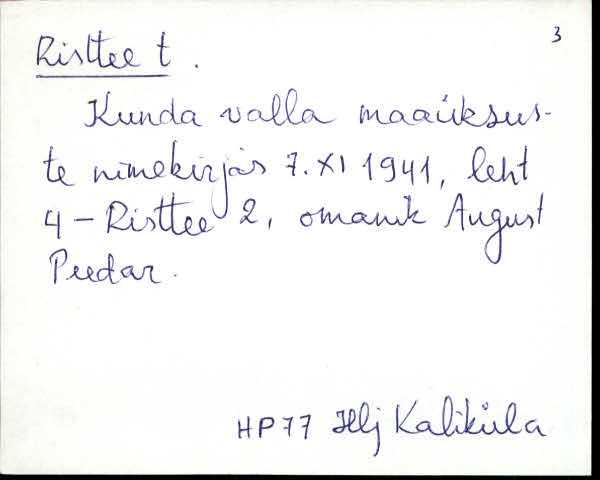 3
Risttee t.
Kunda valla maaüksus-
te nimekirjas 7. XI 1941, leht
4 – Risttee 2, omanik August
Peedar.
HP77 Hlj Kaliküla